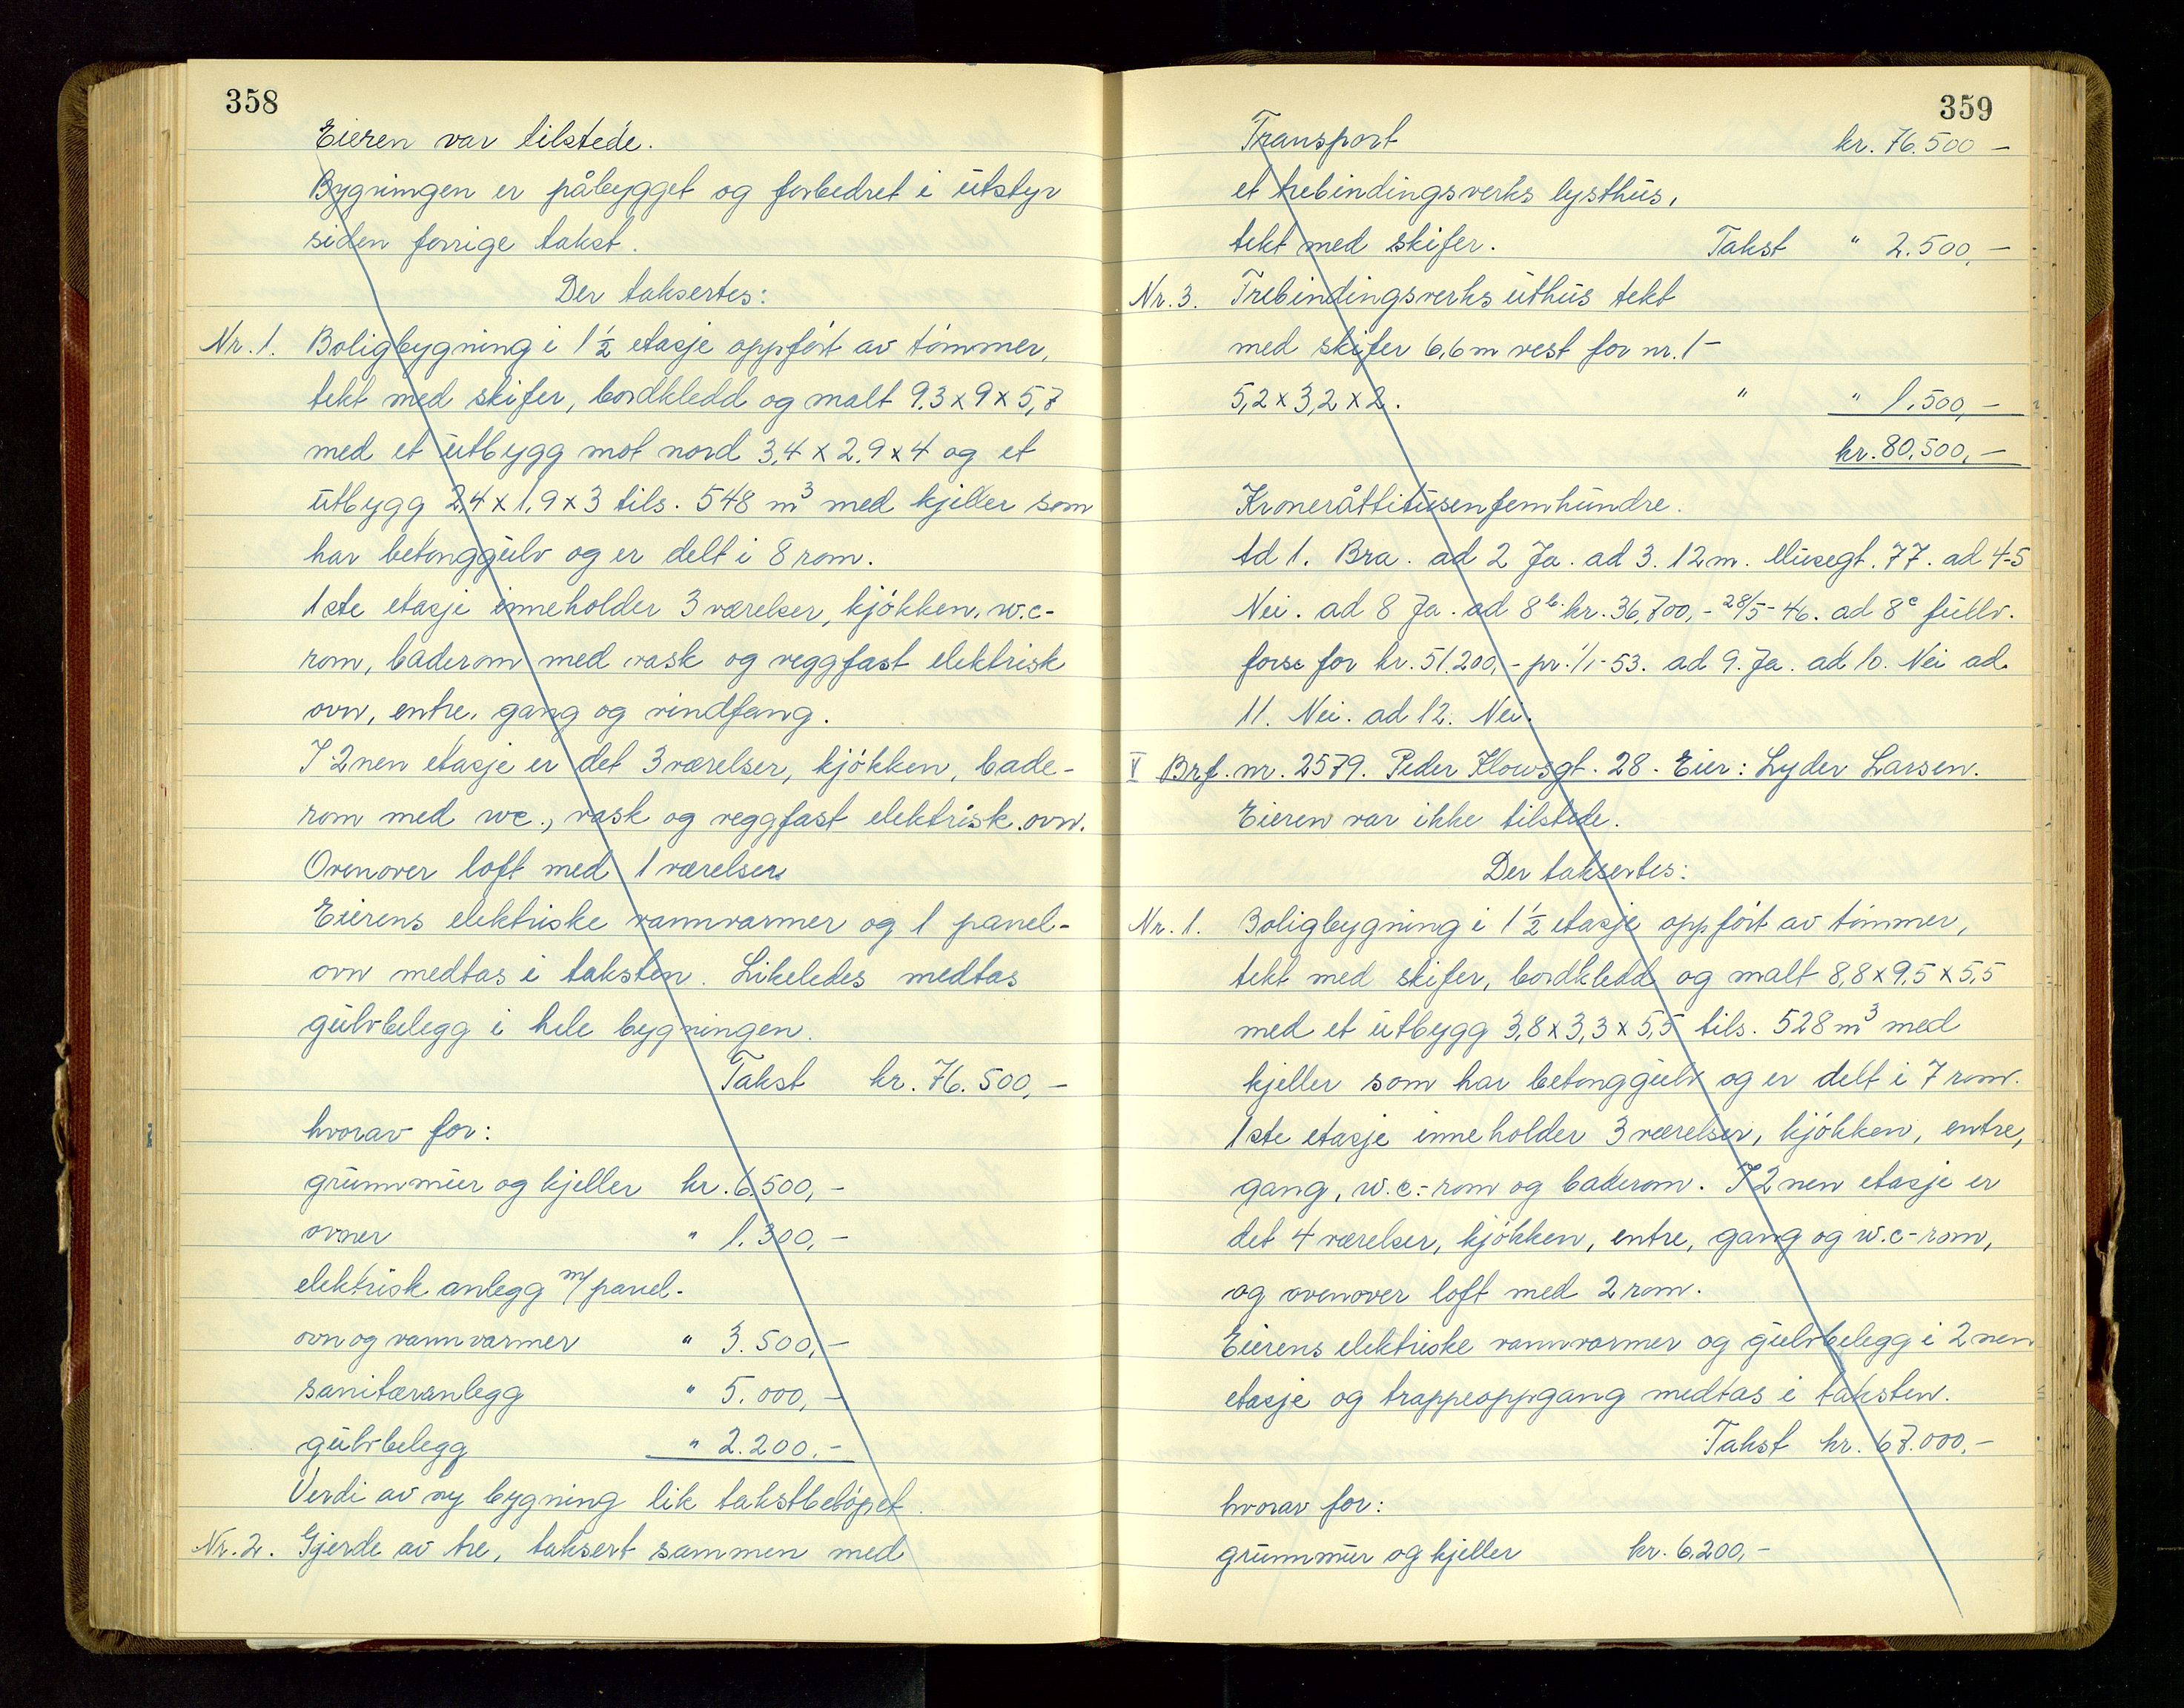 358
Eieren var tilstede.
Bygningen er påbygget og forbedret i utstyr
siden forrige takst.
Der taksertes:
Nr. 1. Boligbygning i 1 1/2 etasje oppført av tømmer,
tekt med skifer, bordkledd og malt 9.3 x 9 x 5,7
med et utbygg mot nord 3,4 x 2.9 x 4 og et
utbygg 2,4 x 1,9 x 3 tils. 548 m³ med kjeller som
har betonggulv og er delt i 8 rom.
1ste etasje inneholder 3 værelser, kjøkken, w.c-
rom, baderom med vask og veggfast elektrisk
ovn, entre, gang og vindfang.
I 2nen etasje er det 3 værelser, kjøkken, bade-
rom med wc., vask og veggfast elektrisk ovn.
Ovenover loft med 1 værelser
Eierens elektriske vannvarmer og 1 panel-
ovn medtas i taksten. Likeledes medtas
gulvbelegg i hele bygningen.
Takst kr. 76.500,-
hvorav for:
grunnmur og kjeller kr. 6.500,-
ovner " 1.300,-
elektrisk anlegg m/panel-
ovn og vannvarmer " 3.500,-
sanitæranlegg " 5.000,-
gulvbelegg " 2.200.-
Verdi av ny bygning lik takstbeløpet.
Nr. 2. Gjerde av tre, taksert sammen med
359
Transport kr. 76.500 -
et trebindingsverks lysthus,
tekt med skifer. Takst " 2.500,-
Nr. 3. Trebindingsverks uthus tekt
med skifer 6,6 m vest for nr. 1 -
5,2 x 3,2 x 2. " " 1.500,-
kr. 80.500,-
Kroneråttitusenfemhundre.
Ad 1. Bra. ad 2 Ja. ad 3. 12 m. Musegt. 77. ad 4-5
Nei. ad 8 Ja. ad 8b. kr. 36,700,- 28/5-46. ad 8c fullv.
forse for kr. 51.200,- pr. 1/1-53. ad 9. Ja. ad 10. Nei ad
11. Nei. ad 12. Nei.
V Brf. nr. 2579. Peder Klowsgt. 28. Eier: Lyder Larsen.
Eieren var ikke tilstede.
Der taksertes:
Nr. 1. Boligbygning i 1 1/2 etasje oppført av tømmer,
tekt med skifer, bordkledd og malt 8,8 x 9,5 x 5,5
med et utbygg 3,8 x 3,3 x 5,5 tils. 528 m³ med
kjeller som har betonggulv og er delt i 7 rom.
1ste etasje inneholder 3 værelser, kjøkken, entre,
gang, w.c.-rom og baderom. I 2nen etasje er
det 4 værelser, kjøkken, entre, gang og w.c-rom,
og ovenover loft med 2 rom.
Eierens elektriske vannvarmer og gulvbelegg i 2nen
etasje og trappeoppgang medtas i taksten.
Takst kr. 67.000,-
hvorav for:
grunnmur og kjeller kr. 6.200,-